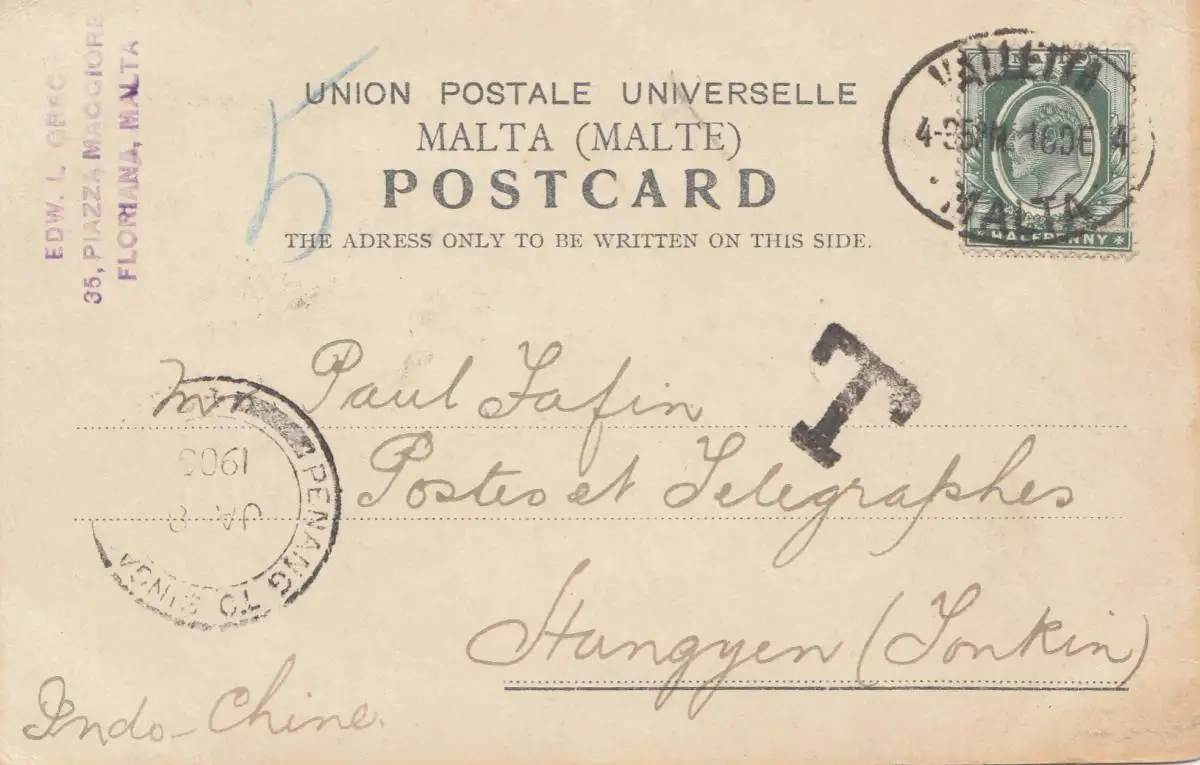 EDW. L.
35, PIAZZA MAGGIORE
FLORIANA, MALTA
5
UNION POSTALE UNIVERSELLE
MALTA (MALTE)
POSTCARD
THE ADRESS ONLY TO BE WRITTEN ON THIS SIDE.
VALLETTA
4-35PM 16DE 4
MALTA
HALFPENNY
T
Paul Jafin
Postes et Telegraphes
Hungyen (Tonkin)
Indo-Chine.
PENANG TO SINGA
JA 8
1905